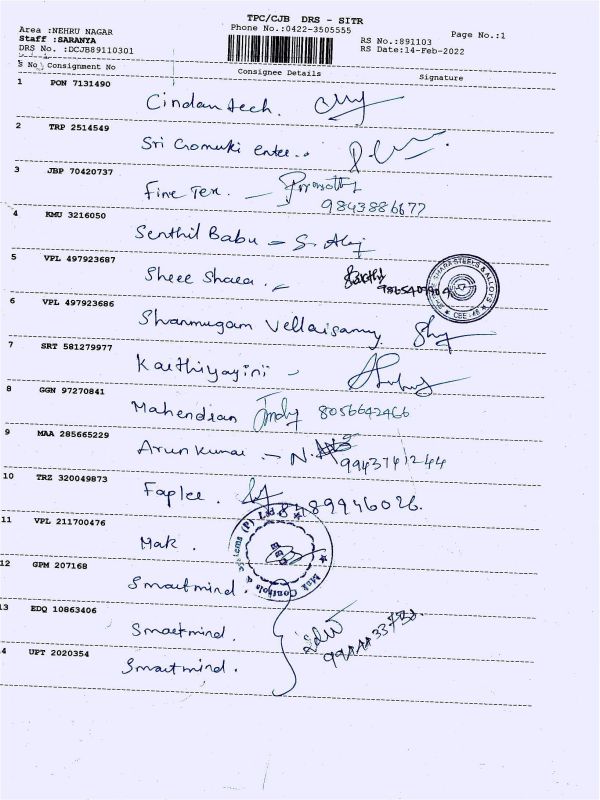 TPC/CJB DRS - SITR
Area :NEHRU NAGAR Phone No.:0422-3505555 Page No.:1
Staff :SARANYA RS No.:891103
DRS No. :DCJB89110301 RS Date:14-Feb-2022
S No Consignment No Consignee Details Signature
1 PON 7131490
Cindantech.
2 TRP 2514549
Sri Gomuki enter..
3 JBP 70420737
Fine Tex. -
9843886677
4 KMU 3216050
Senthil Babu -
5 VPL 497923687
Shree Shara. 9865407904
SHARA STEELS & ALLOYS
CBE - 46
6 VPL 497923686
Shanmugam Vellaisamy
7 SRT 581279977
Karthiyayini -
8 GGN 97270841
Mahendran 8056642466
9 MAA 285665229
Arun kumar - N.
9943741244
10 TRZ 320049873
Faplee. 8489946026.
11 VPL 211700476
Mak.
Mak Controls & Systems (P) Ltd
12 GPM 207168
Smartmind.
13 EDQ 10863406
Smartmind.
4 UPT 2020354
Smartmind.